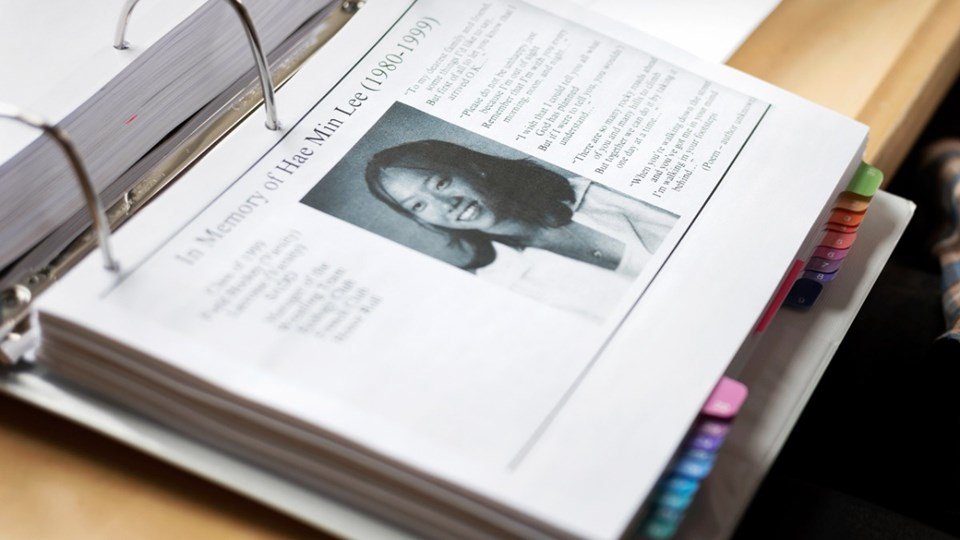 In Memory of Hae Min Lee (1980-1999)
To my dearest family and friend,
some things I'd like to say,
But first of all to let you know that I
arrived O.K. ...
"Please do not be unhappy just
because I'm out of sight
Remember that I'm with you every
morning, noon, and night...."
"I wish that I could tell you all what
God has planned
But if I were to tell you, you wouldn't
understand..."
"There are so many rocky roads ahead
of you and many hills to climb
But together we can do it by taking it
one day at a time..."
"When you're walking down the street
and you've got me in your mind
I'm walking in your footsteps
behind..."
(Poem - author unknown)
Class of 1999
Manager of the